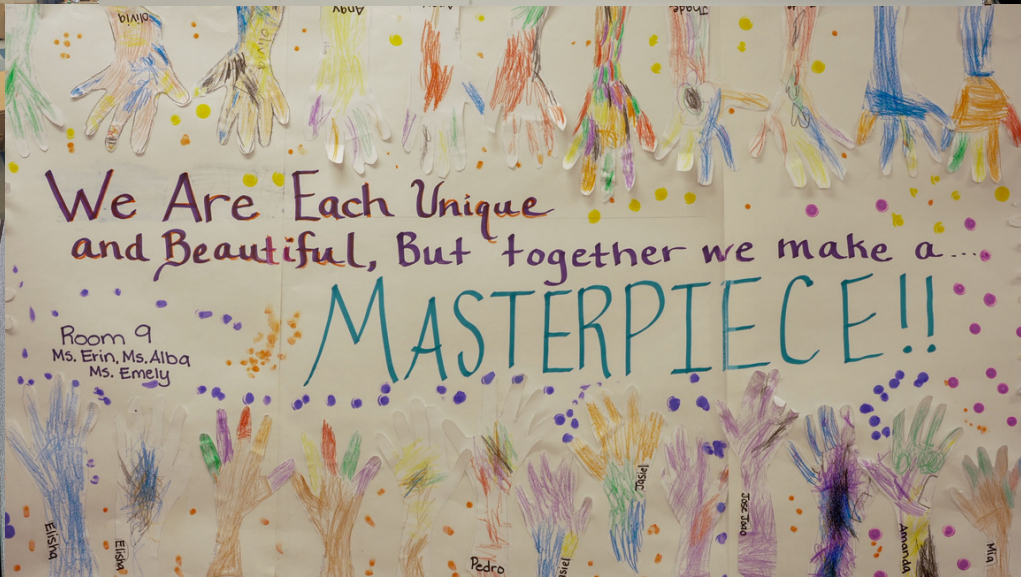 Olivia
Olivia
Angy
Jhade
We Are Each Unique
and Beautiful, But together we make a...
MASTERPIECE!!
Room 9
Ms. Erin, Ms. Alba
Ms. Emely
Elisha
Elisha
Pedro
Jasiel
Jose Joao
Amanda
Mia